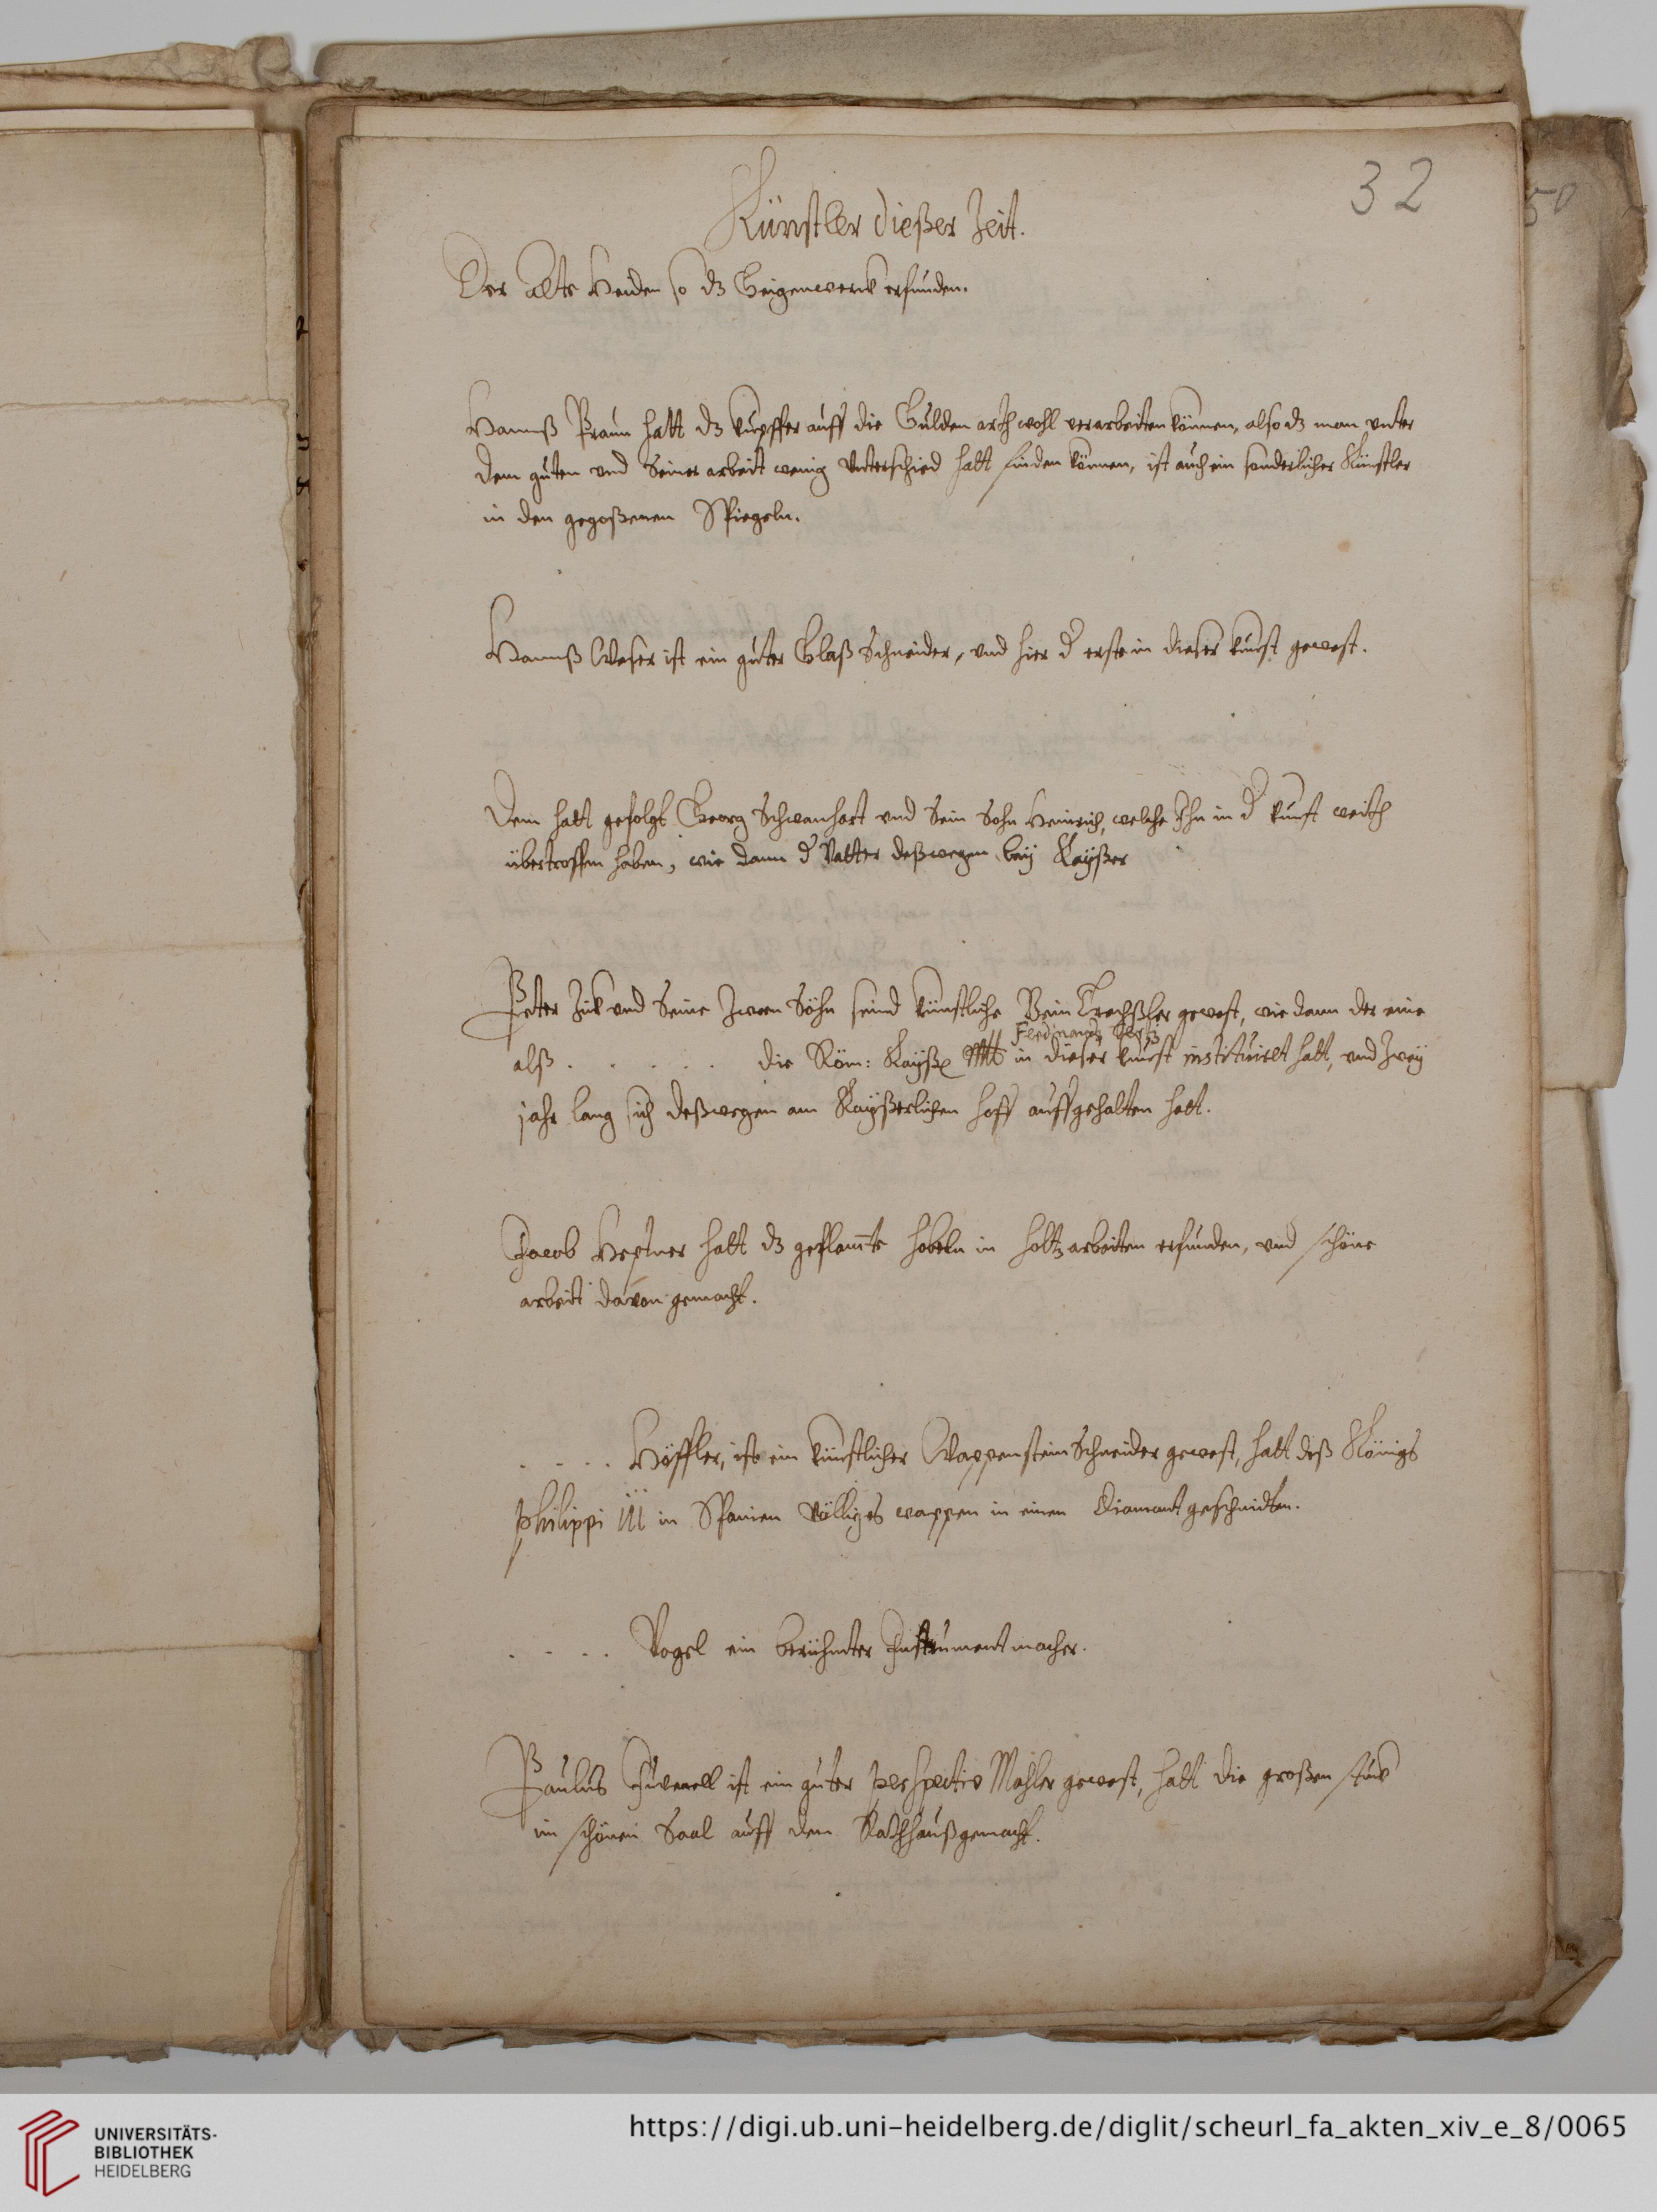 32
50
Künstler dießer Zeit.
Der alte Heiden so dz Geigenwerck erfunden.
Hannß Praun hatt dz kupffer auff die Gulden arth wohl verarbeiten können, also dz man vnter
dem guten vnd Seiner arbeit wenig Vnterschied hatt finden können, ist auch ein sonderlicher Künstler
in den gegoßenen Spiegeln.
Hannß Weser ist ein guter Glaß Schneider, vnd hier d erste in dieser kunst gewest.
Dem hatt gefolgt Georg Schwanhart vnd Sein Sohn Heinrich, welche Ihn in d kunst weith
übertroffen haben, wie dann d Vatter deßwegen bey Kayßer
Peter Zick vnd Seine Zween Söhn seind künstliche Bein Trechßler gewest, wie dann der eine
Ferdinandy
alß . . . . . . die Röm: Kayß Mtt in dieser kunst instituiret hatt, vnd Zwey
jahr lang sich deßwegen am Kayßerlichen hoff auffgehalten hatt.
Jacob Hepner hatt dz geflamte hobeln in holtz arbeiten erfunden, vnd schöne
arbeit davon gemacht.
. . . . Höffler, ist ein künstlicher Wappenstein Schneider gewest, hatt deß Königs
Philippi III in Spanien völliges wappen in einen Diamant geschnidten.
. . . . Vogel ein berühmter Instrument macher.
Paulus Juvenell ist ein guter perspectiv Mahler gewest, hatt die großen stück
im schönen Saal auff dem Rathhauß gemacht.
UNIVERSITÄTS-
BIBLIOTHEK
HEIDELBERG
https://digi.ub.uni-heidelberg.de/diglit/scheurl_fa_akten_xiv_e_8/0065